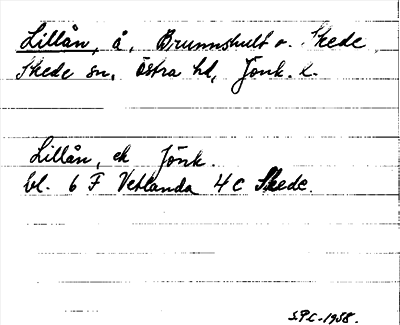 Lillån, å, Brunnshult o. Skede,
Skede sn, Östra hd, Jönk. l.
Lillån, ek Jönk.
bl. 6 F Vetlanda 4 c Skede.
S.P.C. 1958.